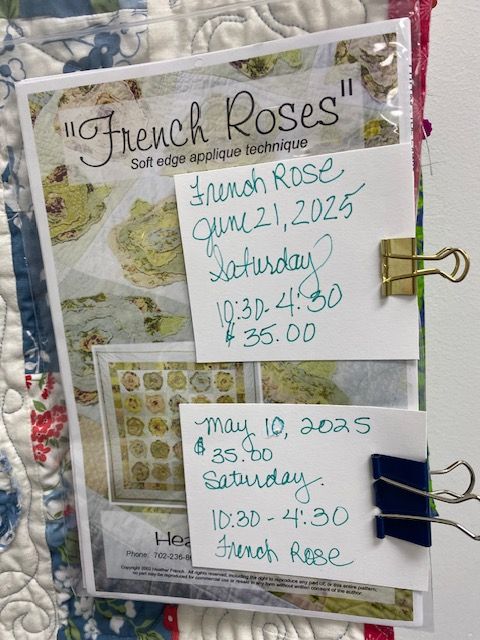 "French Roses"
Soft edge applique technique
French Rose
June 21, 2025
Saturday
10:30-4:30
$35.00
May 10, 2025
$35.00
Saturday.
10:30-4:30
French Rose
Phone: 702-236-
Copyright 2003 Heather French. All rights reserved, including the right to reproduce any part of this entire pattern,
no part may be reproduced for commercial use or resale in any form without written consent of the author.